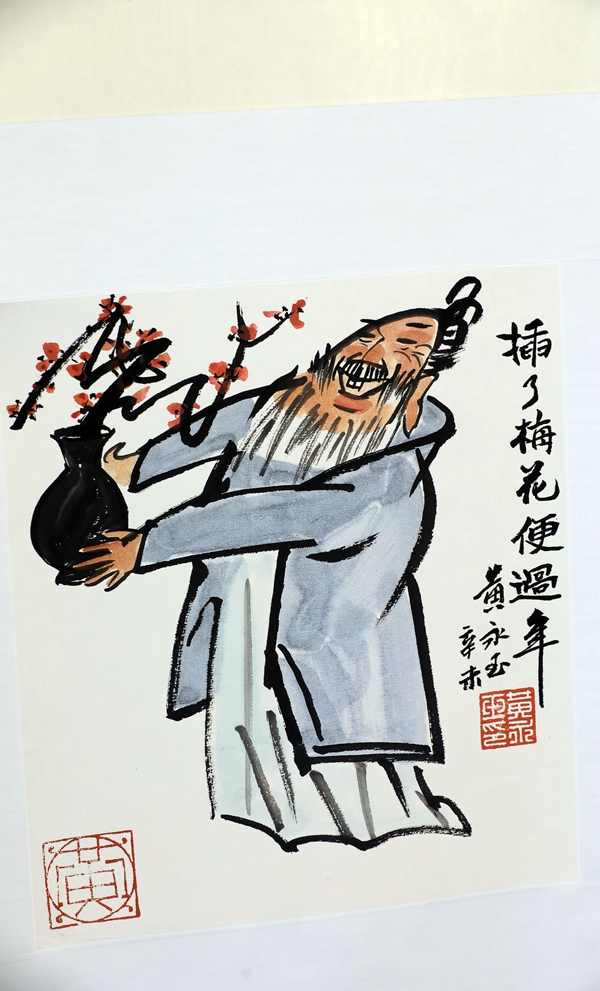 插了梅花便過年
黄永玉
辛未
黃永玉印
黄